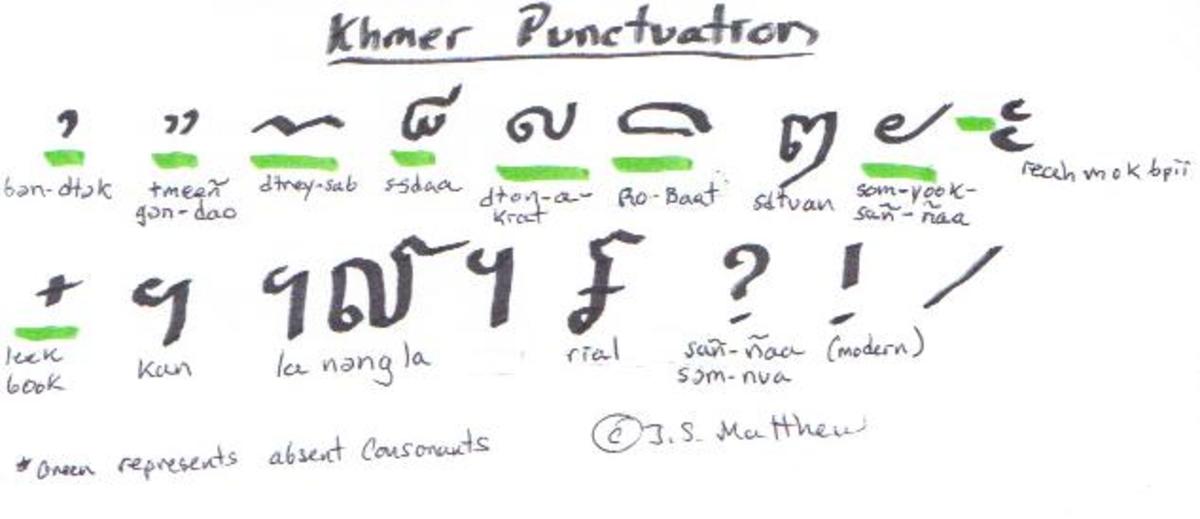 Khmer Punctuation
bən-dtək tmeeñ gən-dao dtrey-sab ssdaa dton-a-krat Ro-Baat sdtuan som-yook-sañ-ñaa reeah mok bpii
leek book kan la nəng la rial sañ-ñaa səm-nua (modern)
? ! /
*Green represents absent Consonants
© J.S. Matthew